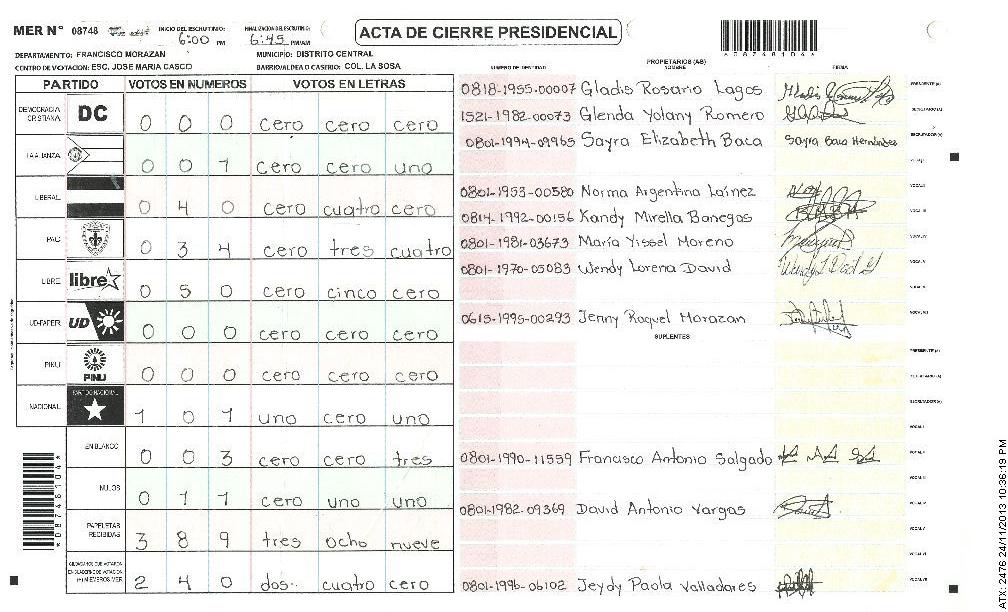 MER N° 08748 INICIO DEL ESCRUTINIO: 6:00 PM FINALIZACION DEL ESCRUTINIO: 6:45 PM/AM
ACTA DE CIERRE PRESIDENCIAL
*08748104*
DEPARTAMENTO: FRANCISCO MORAZAN MUNICIPIO: DISTRITO CENTRAL
CENTRO DE VOTACION: ESC. JOSE MARIA CASCO BARRIO/ALDEA O CASERIO: COL. LA SOSA
PARTIDO VOTOS EN NUMEROS VOTOS EN LETRAS
DEMOCRACIA CRISTIANA DC 0 0 0 cero cero cero
LA ALIANZA 0 0 1 cero cero uno
LIBERAL 0 4 0 cero cuatro cero
PAC 0 3 4 cero tres cuatro
LIBRE libre 0 5 0 cero cinco cero
UD-FAPER UD 0 0 0 cero cero cero
PINU PINU 0 0 0 cero cero cero
NACIONAL PARTIDO NACIONAL 1 0 1 uno cero uno
EN BLANCO 0 0 3 cero cero tres
NULOS 0 1 1 cero uno uno
PAPELETAS RECIBIDAS 3 8 9 tres ocho nueve
CIUDADANOS QUE VOTARON EN CUADERNO DE VOTACION (+) MIEMBROS MER 2 4 0 dos cuatro cero
*08748104*
PROPIETARIOS (AS)
NUMERO DE IDENTIDAD NOMBRE FIRMA
0818-1955-00007 Gladis Rosario Lagos PRESIDENTE (A)
1521-1982-00073 Glenda Yolany Romero SECRETARIO (A)
0801-1994-09965 Sayra Elizabeth Baca Sayra Baca Hernández ESCRUTADOR (A)
VOCAL I
0801-1953-00580 Norma Argentina Laínez VOCAL II
0814-1992-00156 Kandy Mirella Banegas VOCAL III
0801-1981-03673 María Yissel Moreno VOCAL IV
0801-1970-05083 Wendy Lorena David VOCAL V
VOCAL VI
0615-1995-00293 Jenny Raquel Morazan VOCAL VII
SUPLENTES
PRESIDENTE (A)
SECRETARIO (A)
ESCRUTADOR (A)
VOCAL I
0801-1990-11559 Francisco Antonio Salgado VOCAL II
VOCAL III
0801-1982-09369 David Antonio Vargas VOCAL IV
VOCAL V
VOCAL VI
0801-1996-06102 Jeydy Paola Valladares VOCAL VII
ATX-2476 24/11/2013 10:36:19 PM